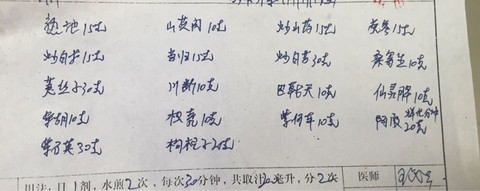 熟地15克 山萸肉10克 炒山药15克 党参15克
炒白术15克 当归15克 炒白芍30克 桑寄生10克
菟丝子30克 川断10克 巴戟天10克 仙灵脾10克
烊化分冲
柴胡10克 枳壳10克 紫河车10克 阿胶20克
紫石英30克 枸杞子20克
用法:日1剂,水煎2次,每次30分钟,共取汁 毫升,分2次 医师